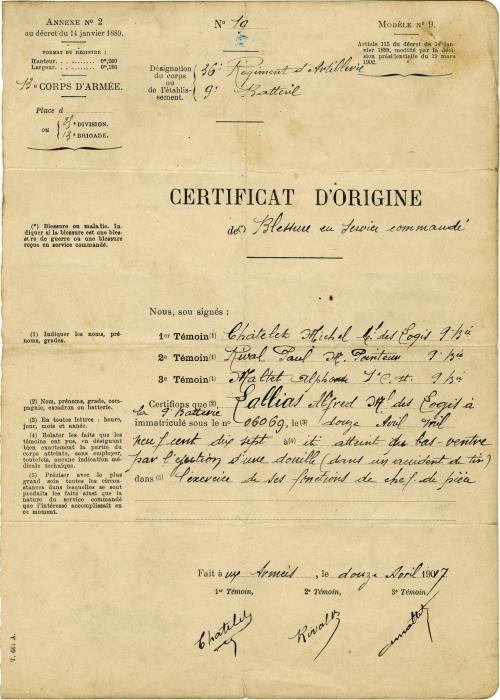 Annexe Nº 2
au décret du 14 janvier 1889.
FORMAT DU REGISTRE :
Hauteur. . . . . . . . . . 0m,260
Largeur. . . . . . . . . . 0m,180
13e CORPS D'ARMÉE.
Place d
ou
25e DIVISION.
13e BRIGADE.
Nº 19
Désignation du corps ou de l'établissement.
36e Régiment d'Artillerie
9e Batterie
Modèle Nº 9.
Article 115 du décret du 14 janvier 1889, modifié par la décision présidentielle du 19 mars 1902.
CERTIFICAT D'ORIGINE
de(*) Blessure en service commandé
(*) Blessure ou maladie. Indiquer si la blessure est une blessure de guerre ou une blessure reçue en service commandé.
Nous, sou signés :
(1) Indiquer les noms, prénoms, grades.
1er Témoin(1) Châtelet Michel Mal des Logis 9e Bie
2e Témoin(1) Rival Paul M. Pointeur 9e Bie
3e Témoin(1) Mallet Alphonse 9e Bie
(2) Nom, prénoms, grade, compagnie, escadron ou batterie.
(3) En toutes lettres : heure, jour, mois et année.
(4) Relater les faits que les témoins ont vus, en désignant bien exactement la partie du corps atteinte, sans employer, toutefois, aucune indication médicale technique.
(5) Préciser avec le plus grand soin toutes les circonstances dans lesquelles se sont produits les faits ainsi que la nature du service commandé que l'intéressé accomplissait en ce moment.
Certifions que (2) Lallias Alfred Mal des Logis à
la 9e Batterie
immatriculé sous le nº 06069, le (3) douze Avril mil
neuf cent dix sept a(4) été atteint du bas-ventre
par l'éjection d'une douille (dans un accident de tir)
dans (5) l'exercice de ses fonctions de chef de pièce
Fait à aux Armées, le douze Avril 1917
1er Témoin, 2e Témoin, 3e Témoin,
Chatelet Rival Mallet
T. 661 A.